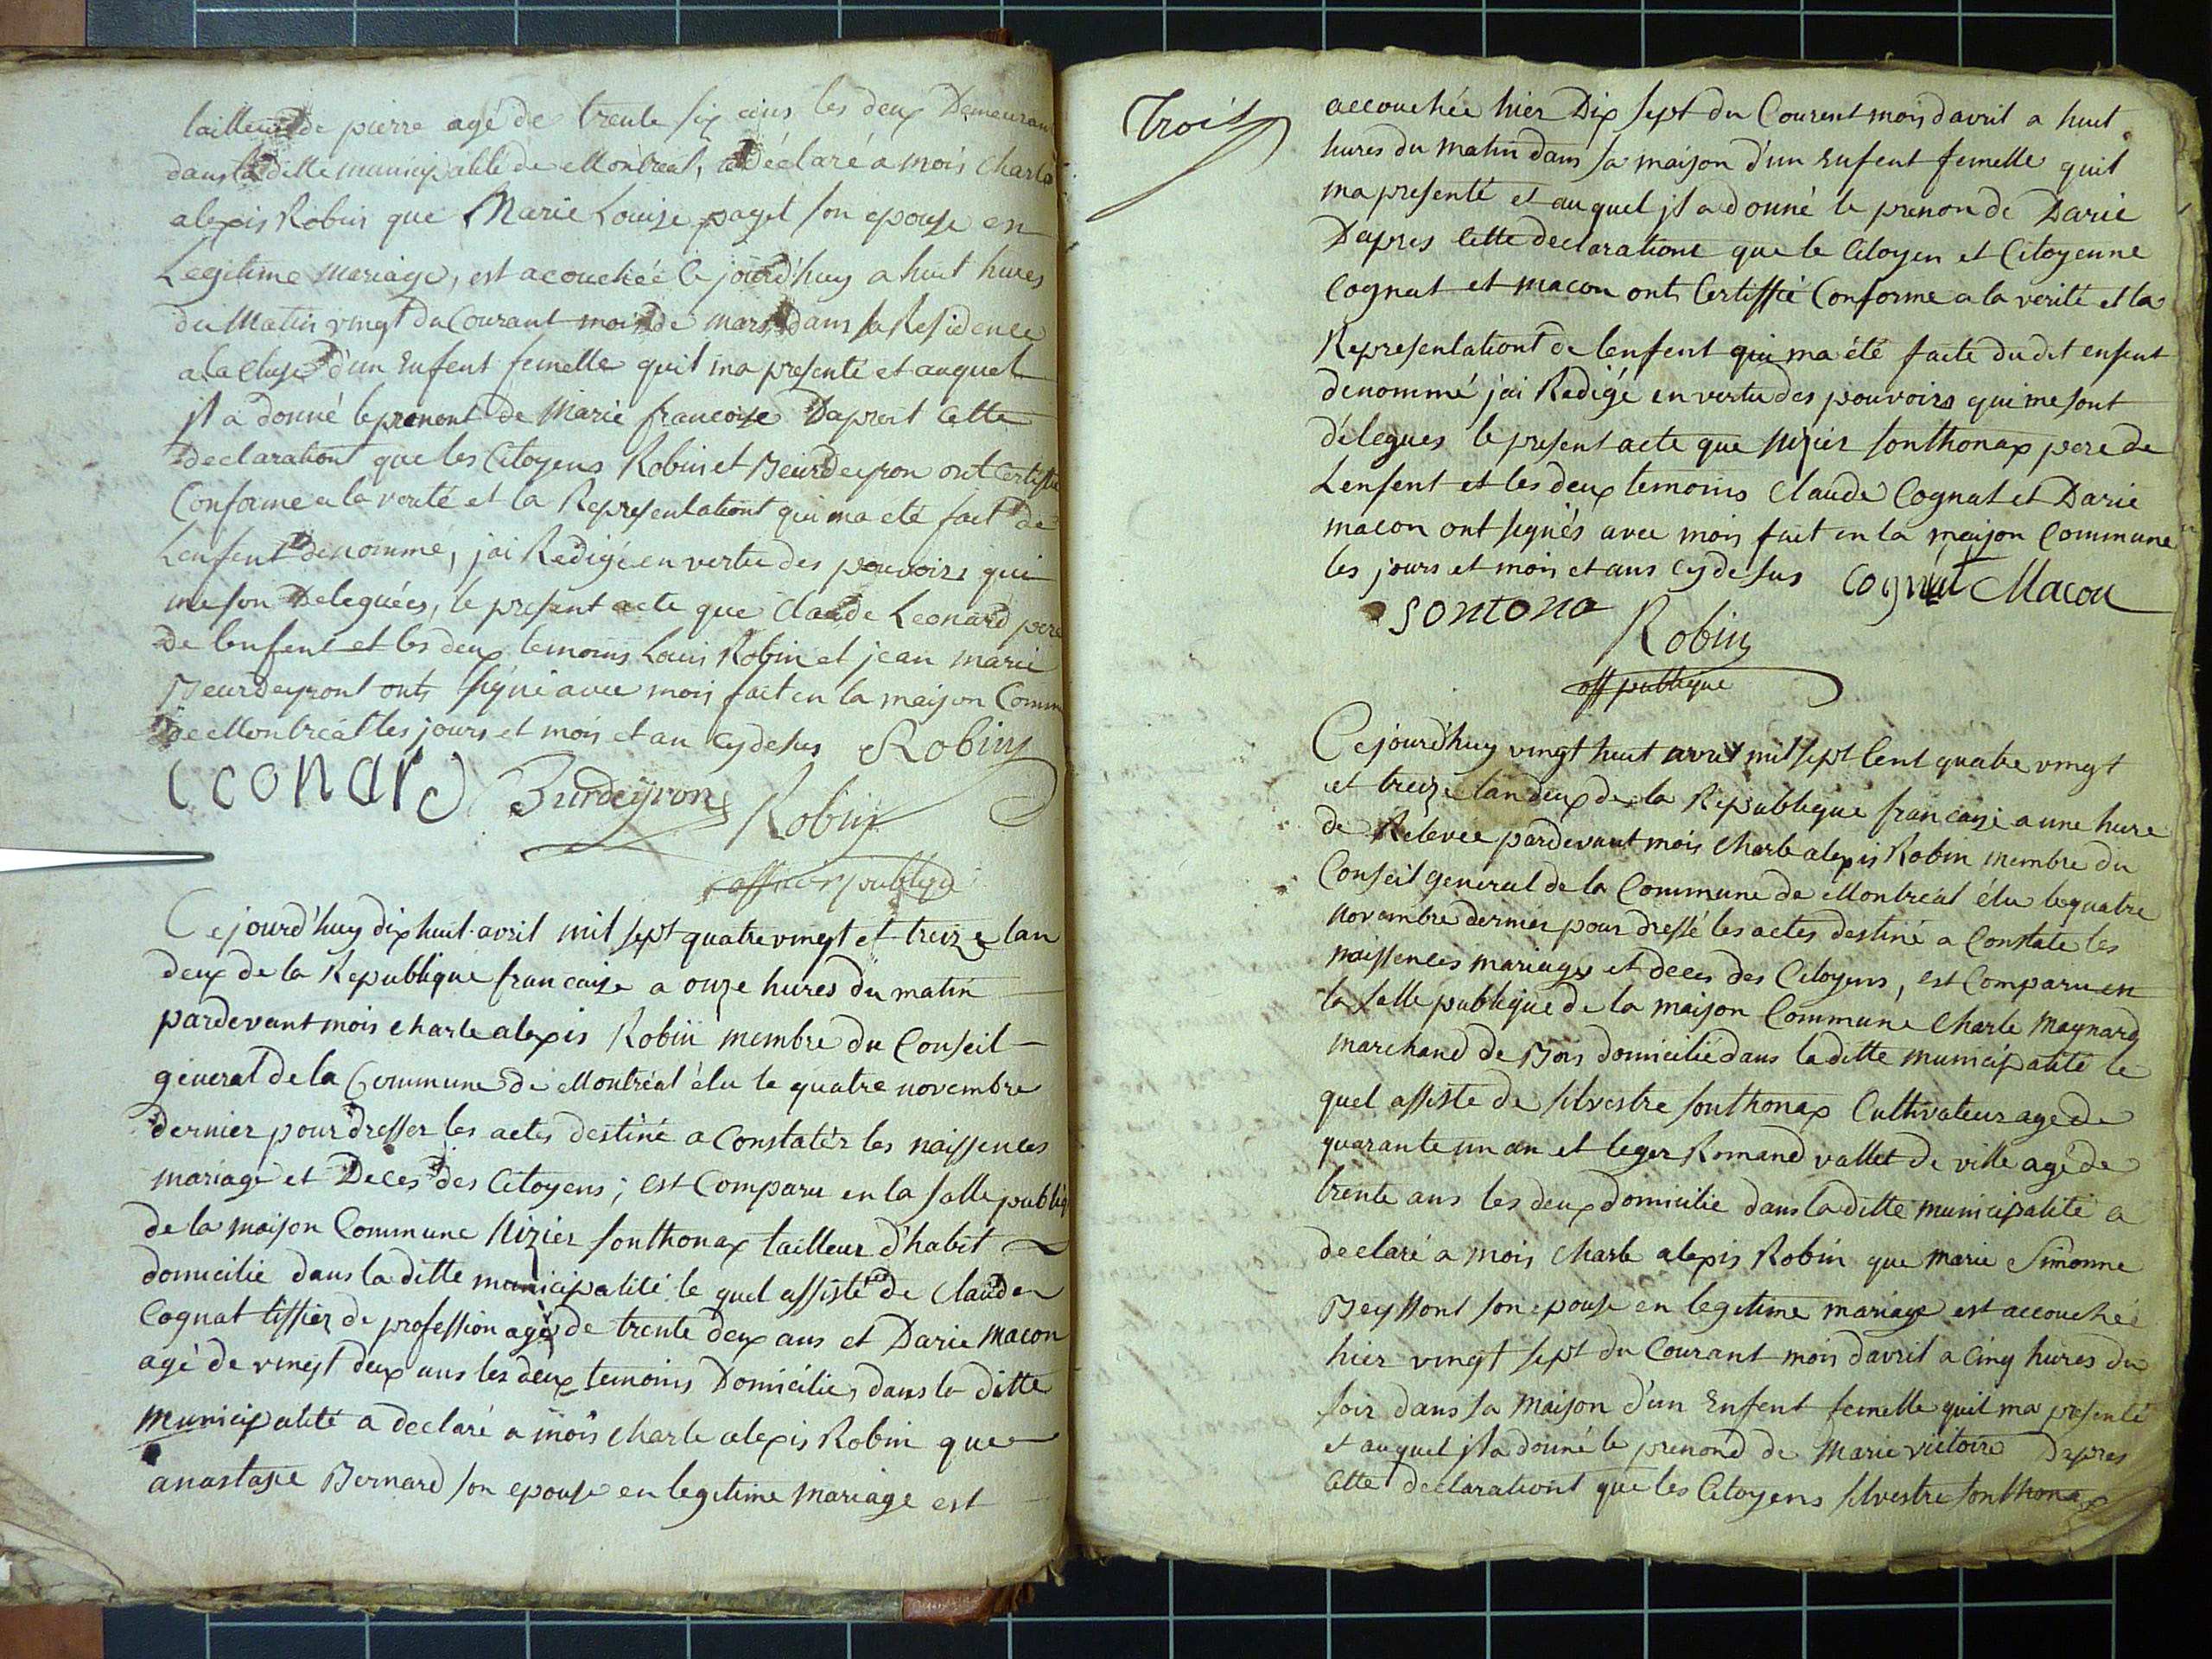 tailleur de pierre agé de trente six ans les deux Demeurant
dans la ditte municipalité de Montreal, a Déclaré a mois Charle
alexis Robin que Marie Louise paget son epouse en
Legitime Mariage, est acouchéé ce jourd'huy a huit hures
du Matin vingt du Courant mois de mars dans sa Residence
a la Cluse d'un Enfent femelle quil ma presenté et auquel
jl a donné le prenont de Marie francoise Daprest Cette
declaration que les Citoyens Robin et Beurdeyron ont Certiffié
Conforme a la verité et la Representationt qui ma eté fait de
Lenfent denommé, jai Redigé en vertu des pouvoirs qui
me son Deleguées, le present acte que Claude Leonard pere
De lenfent et les deux temoins Louis Robin et jean marie
Beurdeyront onts signé avec mois fait en la maison Comm
De Montreal les jours et mois et an cy desus Robin
Leonard Burdeyron Robin
officier publique
Cejourd'huy dix huit avril mil sept quatre vingt et treize lan
deux de la Republique francaise a onze hures du matin
pardevant mois charle alexis Robin membre du Conseil
general de la Commune de Montréal élu le quatre novembre
dernier pour dresser les actes destiné a Constatér les naissences
mariage et Deces des Citoyens; est Comparu en la salle publiq
de la maison Commune Nizier sonthonax tailleur d'habit
domicilie dans la ditte municipalité le quel assisté de Claude
Cognat tissier de profession agé de trente deux ans et Darie Macon
agé de vingt deux ans les deux temoins Domicilies dans la ditte
Municipalité a declaré a mois Charle alexis Robin que
anastasie Bernard son epouse en legitime Mariage est
Trois
accouchée hier Dix sept du Courent mois davril a huit
hures du Matin dans sa maison d'un Enfent femelle quil
ma presenté et auquel jl a donné le prenon de Darie
Dapres Cette declarationt que le Citoyen et Citoyenne
Cognat et macon onts Certiffié Conforme a la verité et la
Representationt de lenfent qui ma été faite du dit enfent
denommé jai Redigé en vertu des pouvoirs qui me sont
délegues le present acte que Nizier sonthonax pere de
Lenfent et les deux temoins Claude Cognat et Darie
macon ont signés avec mois fait en la maison Commune
les jours et mois et ans cy desus Cognat Macon
sontona Robin
off publique
Cejourd'huy vingt huit avril mil sept Cent quatre vingt
et treize lan deux de la Republique francaise a une hure
de Relevée pardevant mois Charle alexis Robin membre du
Conseil general de la Commune de Montreal élu le quatre
novembre dernier pour dressé les actes destiné a Constate les
naissences mariages et deces des Citoyens, est Comparu en
la salle publique de la maison Commune Charle Maynard
marchand de Bois domicilié dans la ditte municipalité le
quel assiste de silvestre sonthonax Cultivateur age de
quarante un an et leger Romand vallet de ville agé de
trente ans les deux domicilie dans la ditte municipalité a
declaré a mois Charle alexis Robin que marie Simonne
Beyssont son epouse en legitime mariage est accouché
hier vingt sept du Courant mois davril a Cinq hures du
soir dans sa Maison d'un Enfent femelle quil ma presenté
et auquel jl a donné le prenond de Marie victoire Dapres
Cette declarationt que les Citoyens silvestre sonthonax